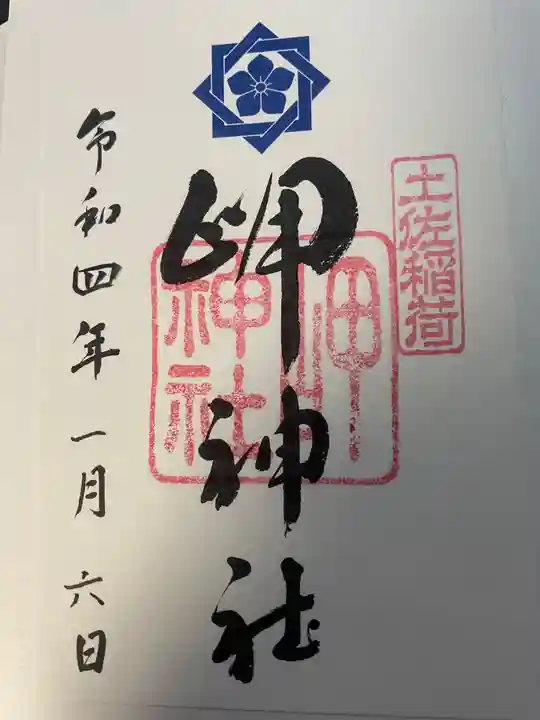 土佐稲荷
岬神社
岬
神社
令和四年一月六日